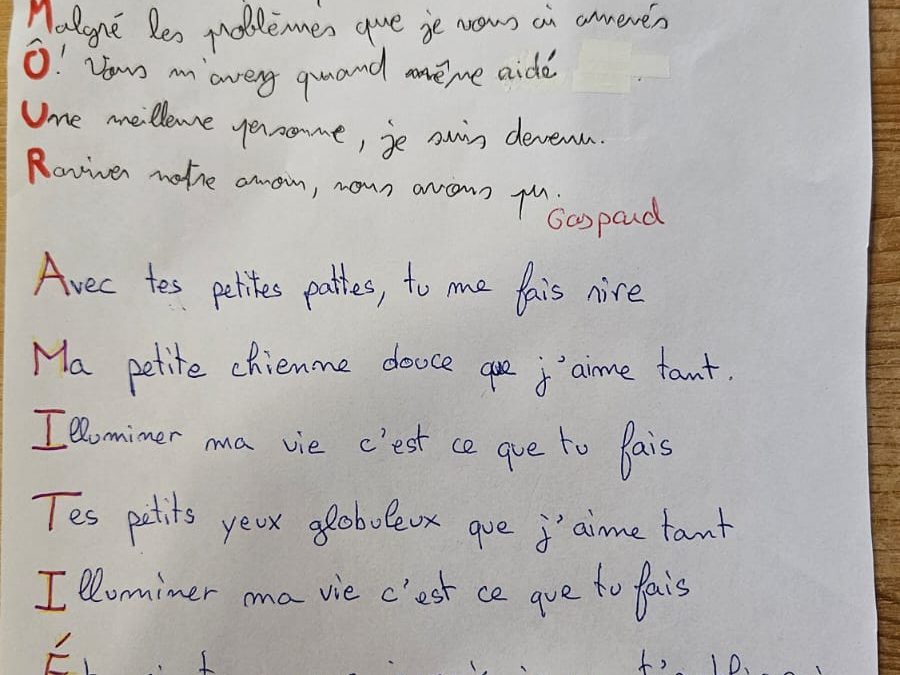 Malgré les problèmes que je vous ai amenés
Ô! Vous m'avez quand même aidé
Une meilleure personne, je suis devenu.
Raviver notre amour, nous avons pu.
Gaspard
Avec tes petites pattes, tu me fais rire
Ma petite chienne douce que j'aime tant.
Illuminer ma vie c'est ce que tu fais
Tes petits yeux globuleux que j'aime tant
Illuminer ma vie c'est ce que tu fais